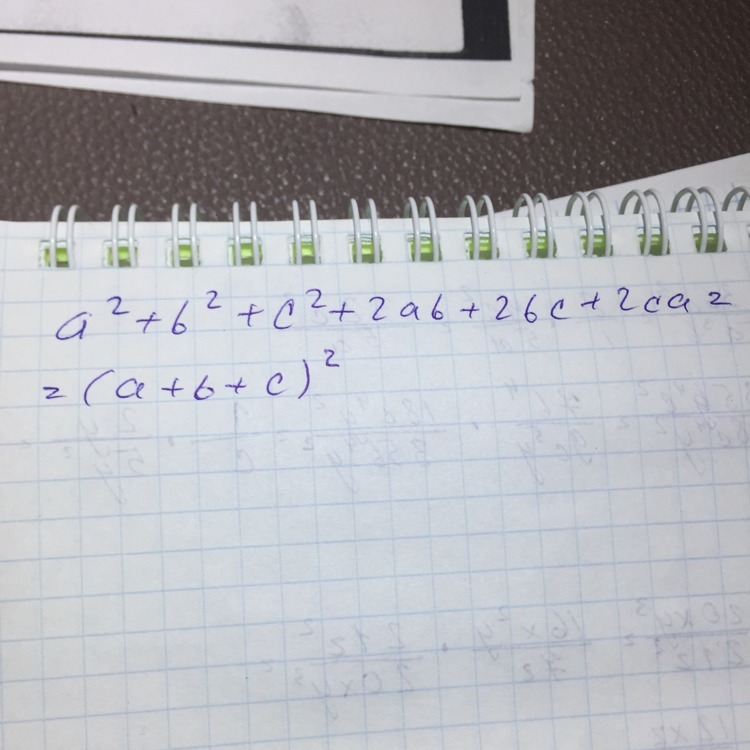 a² + b² + c² + 2ab + 2bc + 2ca =
= (a + b + c)²